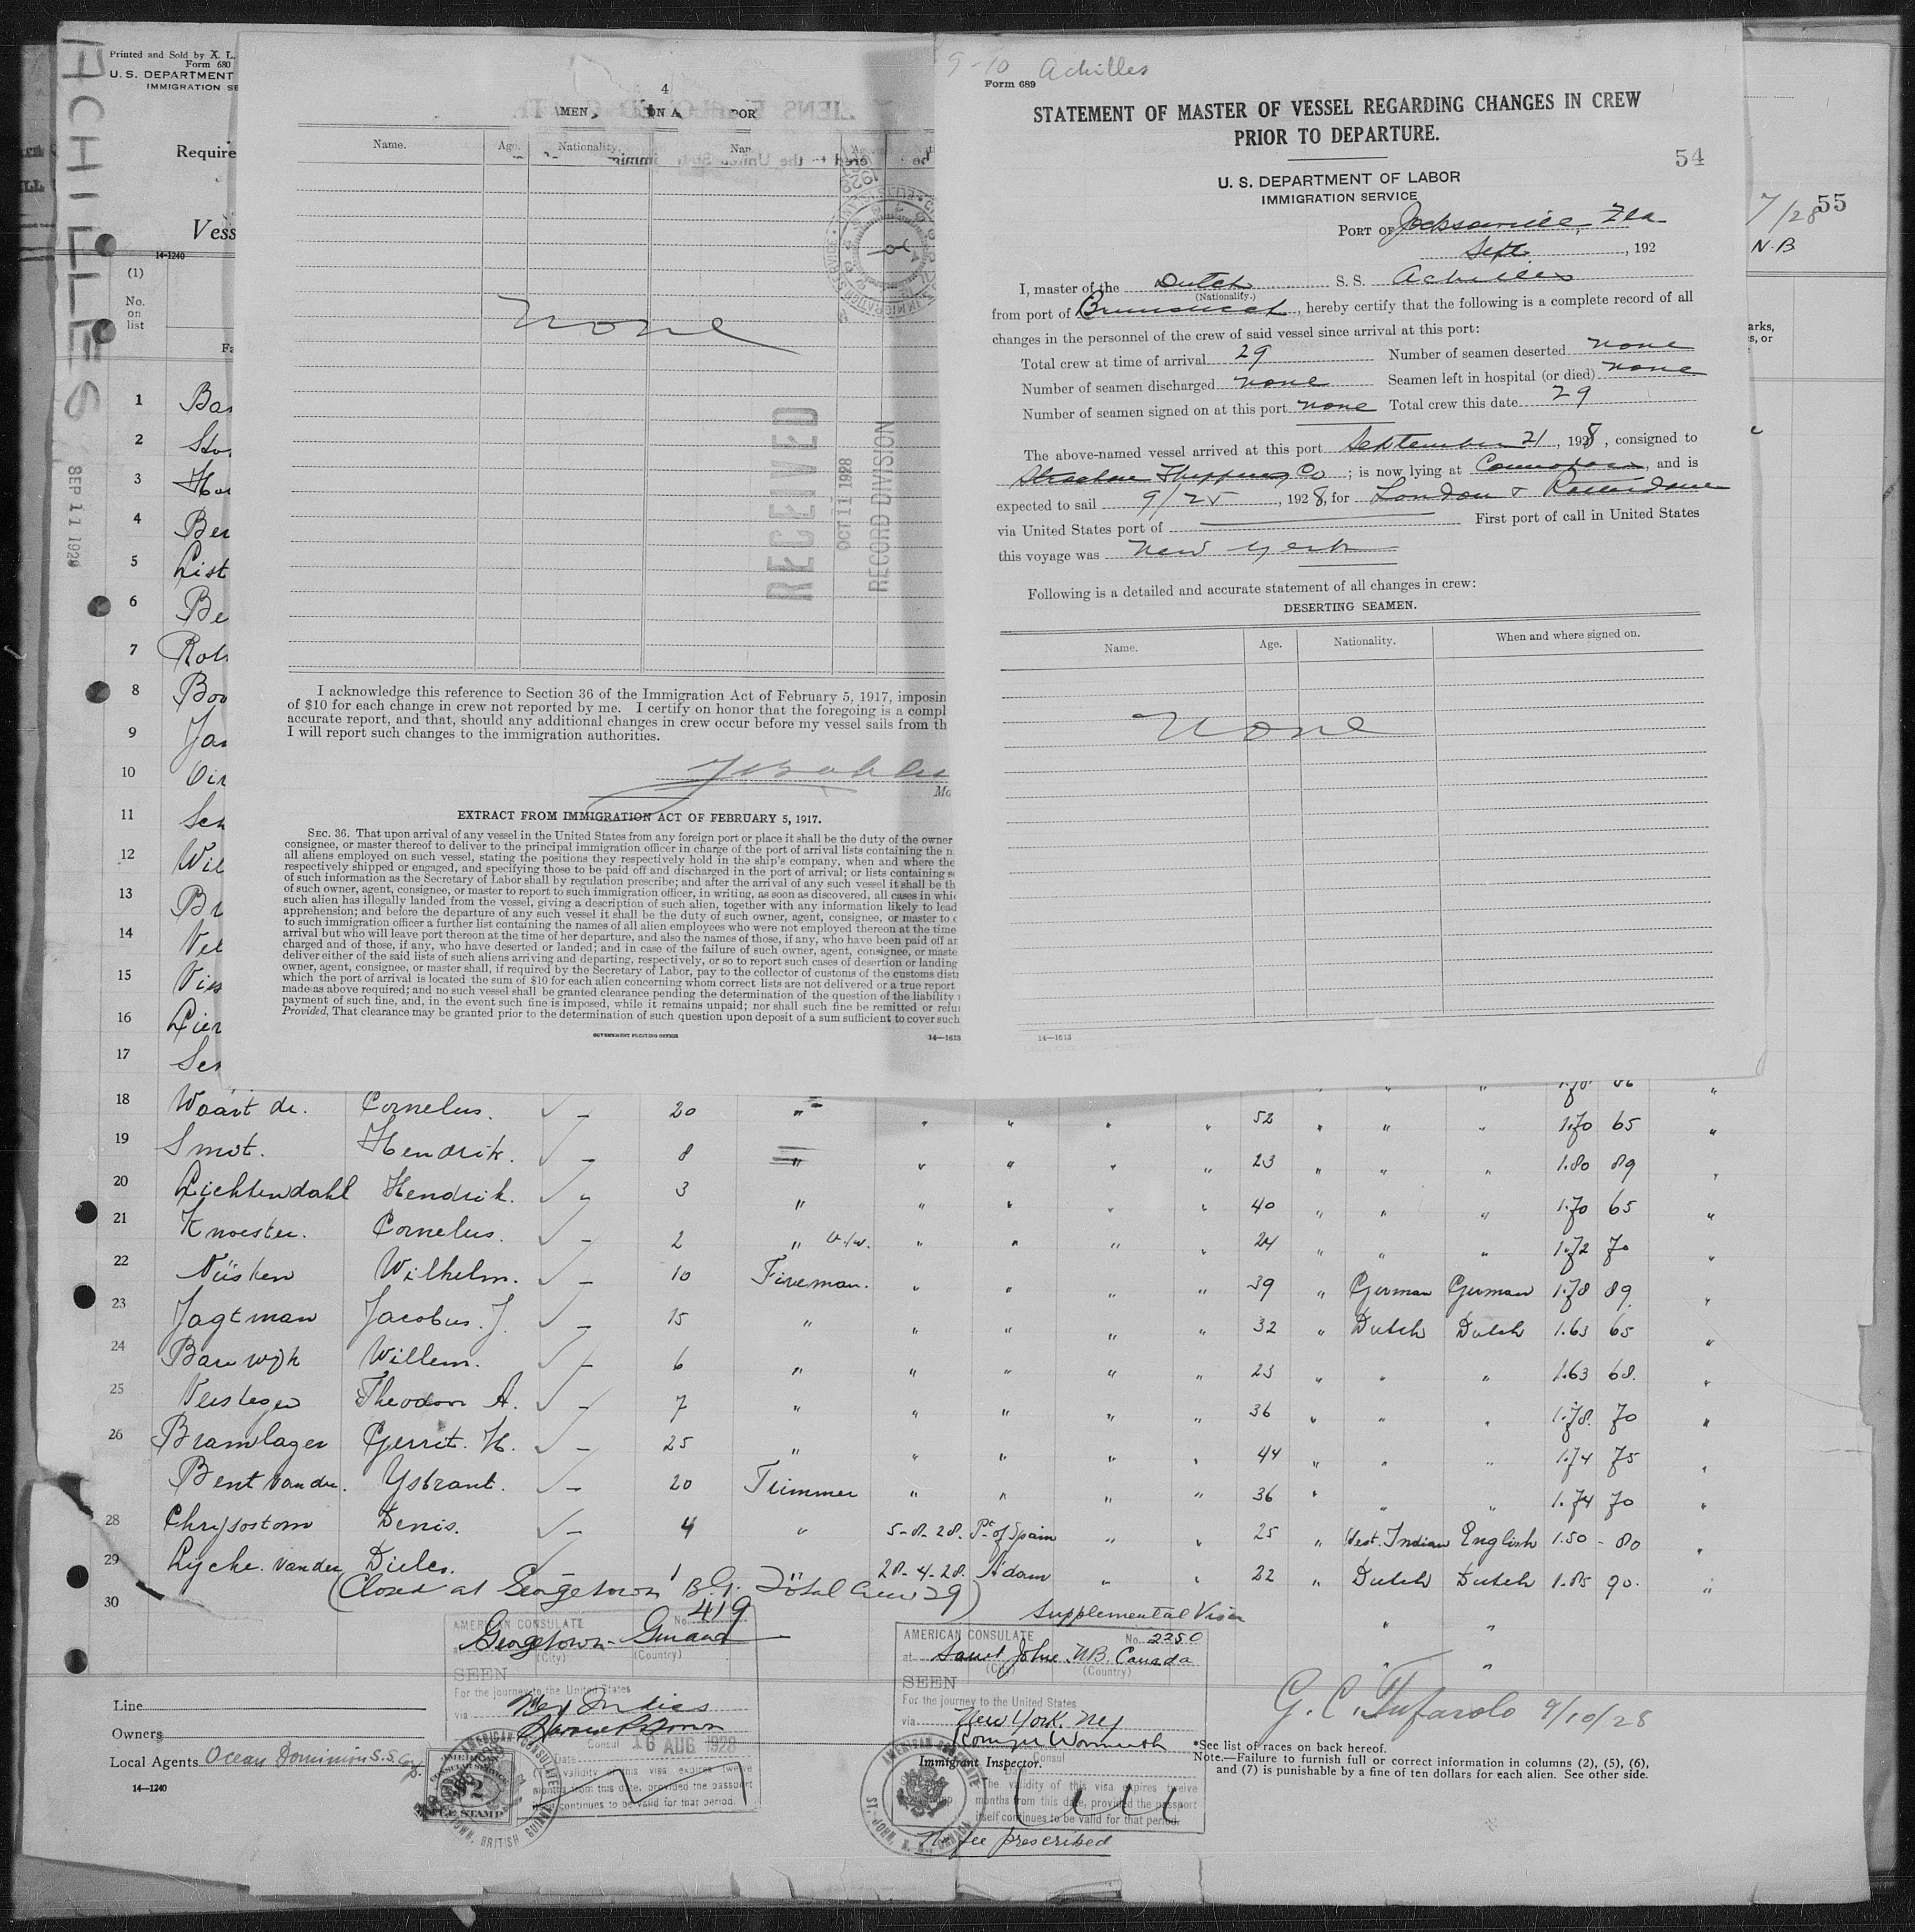 Printed and Sold by A. L.
Form 680
U. S. DEPARTMENT
IMMIGRATION SE
ACHILLES
SEP 11 1928
Require
Vess
14-1240
(1)
No.
on
list
Fa
1 Bas
2 Sto
3 Ha
4 Ber
5 List
6 Be
7 Rob
8 Boo
9 Jan
10 Dir
11 Sch
12 Wil
13 Br
14 Vel
15 Vis
16 Lier
17 Ser
4
AMEN ON A DOR
Name. Age. Nationality. Nam
none
RECEIVED
OCT 11 1928
RECORD DIVISION
I acknowledge this reference to Section 36 of the Immigration Act of February 5, 1917, imposin
of $10 for each change in crew not reported by me. I certify on honor that the foregoing is a compl
accurate report, and that, should any additional changes in crew occur before my vessel sails from th
I will report such changes to the immigration authorities.
EXTRACT FROM IMMIGRATION ACT OF FEBRUARY 5, 1917.
SEC. 36. That upon arrival of any vessel in the United States from any foreign port or place it shall be the duty of the owner
consignee, or master thereof to deliver to the principal immigration officer in charge of the port of arrival lists containing the n
all aliens employed on such vessel, stating the positions they respectively hold in the ship's company, when and where the
respectively shipped or engaged, and specifying those to be paid off and discharged in the port of arrival; or lists containing s
of such information as the Secretary of Labor shall by regulation prescribe; and after the arrival of any such vessel it shall be th
of such owner, agent, consignee, or master to report to such immigration officer, in writing, as soon as discovered, all cases in whi
such alien has illegally landed from the vessel, giving a description of such alien, together with any information likely to lead
apprehension; and before the departure of any such vessel it shall be the duty of such owner, agent, consignee, or master to
to such immigration officer a further list containing the names of all alien employees who were not employed thereon at the time
arrival but who will leave port thereon at the time of her departure, and also the names of those, if any, who have been paid off an
charged and of those, if any, who have deserted or landed; and in case of the failure of such owner, agent, consignee, or maste
deliver either of the said lists of such aliens arriving and departing, respectively, or so to report such cases of desertion or landing
owner, agent, consignee, or master shall, if required by the Secretary of Labor, pay to the collector of customs of the customs distr
which the port of arrival is located the sum of $10 for each alien concerning whom correct lists are not delivered or a true report
made as above required; and no such vessel shall be granted clearance pending the determination of the question of the liability
payment of such fine, and, in the event such fine is imposed, while it remains unpaid; nor shall such fine be remitted or refu
Provided, That clearance may be granted prior to the determination of such question upon deposit of a sum sufficient to cover such
GOVERNMENT PRINTING OFFICE 14—1613
9-10 Achilles
Form 689
STATEMENT OF MASTER OF VESSEL REGARDING CHANGES IN CREW
PRIOR TO DEPARTURE.
54
U. S. DEPARTMENT OF LABOR
IMMIGRATION SERVICE
PORT OF Jacksonville, Fla
Sept. , 192
I, master of the Dutch S. S. Achilles
(Nationality.)
from port of Brunswick, hereby certify that the following is a complete record of all
changes in the personnel of the crew of said vessel since arrival at this port:
Total crew at time of arrival 29 Number of seamen deserted none
Number of seamen discharged none Seamen left in hospital (or died) none
Number of seamen signed on at this port none Total crew this date 29
The above-named vessel arrived at this port September 21, 1928, consigned to
Strachan Shipping Co; is now lying at , and is
expected to sail 9/25, 1928, for London & Rotterdam
via United States port of First port of call in United States
this voyage was New York
Following is a detailed and accurate statement of all changes in crew:
DESERTING SEAMEN.
Name. Age. Nationality. When and where signed on.
none
14—1613
7/28 55
N.B
arks,
s, or
18 Waart de. Cornelus. ✓ — 20 " " " " " 52 " " " 1.70 65 "
19 Smit. Hendrik. ✓ — 8 " " " " " 23 " " " 1.80 89 "
20 Lichtendahl Hendrik. ✓ " 3 " " " " " 40 " " " 1.70 65 "
21 Knoester. Cornelus. ✓ — 2 " " " " " 24 " " " 1.72 70 "
22 Nüsken Wilhelm. ✓ — 10 Fireman. " " " " 39 " German German 1.78 89 "
23 Jagtman Jacobus. J. ✓ — 15 " " " " " 32 " Dutch Dutch 1.63 65 "
24 Bauwyk Willem. ✓ — 6 " " " " " 23 " " " 1.63 68. "
25 Versteger Theodoor A. ✓ — 7 " " " " " 36 " " " 1.78. 70 "
26 Bramlager Gerrit. H. ✓ — 25 " " " " " 44 " " " 1.74 75 "
Bent van der. Ysbrant. ✓ — 20 Trimmer " " " " 36 " " " 1.74 70 "
28 Chrysostom Denis. ✓ — 4 " 5-8-28. Pt of Spain " " 25 " West. Indian English 1.50 - 80 "
29 Lyche. van der Dirk. 1 " 28-4-28. A'dam " " 22 " Dutch Dutch 1.85 90. "
30 (Closed at Georgetown B.G. Total Crew 29)
Supplemental Visa
AMERICAN CONSULATE No. 419
Georgetown - Guiana
(City) (Country)
SEEN
For the journey to the United States
via West Indies
Consul 16 AUG 1928
Date
validity of this visa expires twelve
months from this date, provided the passport
itself continues to be valid for that period.
AMERICAN CONSULAR SERVICE
2
FEE STAMP
AMERICAN CONSULATE
GEORGETOWN, BRITISH GUIANA
AMERICAN CONSULATE No. 2250
at Saint John. N.B. Canada
(City) (Country)
SEEN
For the journey to the United States
via New York. NY
Consul
Immigrant Inspector.
The validity of this visa expires twelve
months from this date, provided the passport
itself continues to be valid for that period.
AMERICAN CONSULATE
ST. JOHN, N. B., CANADA
No fee prescribed
G. C. Tufarolo 9/10/28
Line
Owners
Local Agents Ocean Dominion S.S. Corp.
14—1240
*See list of races on back hereof.
Note.—Failure to furnish full or correct information in columns (2), (5), (6),
and (7) is punishable by a fine of ten dollars for each alien. See other side.